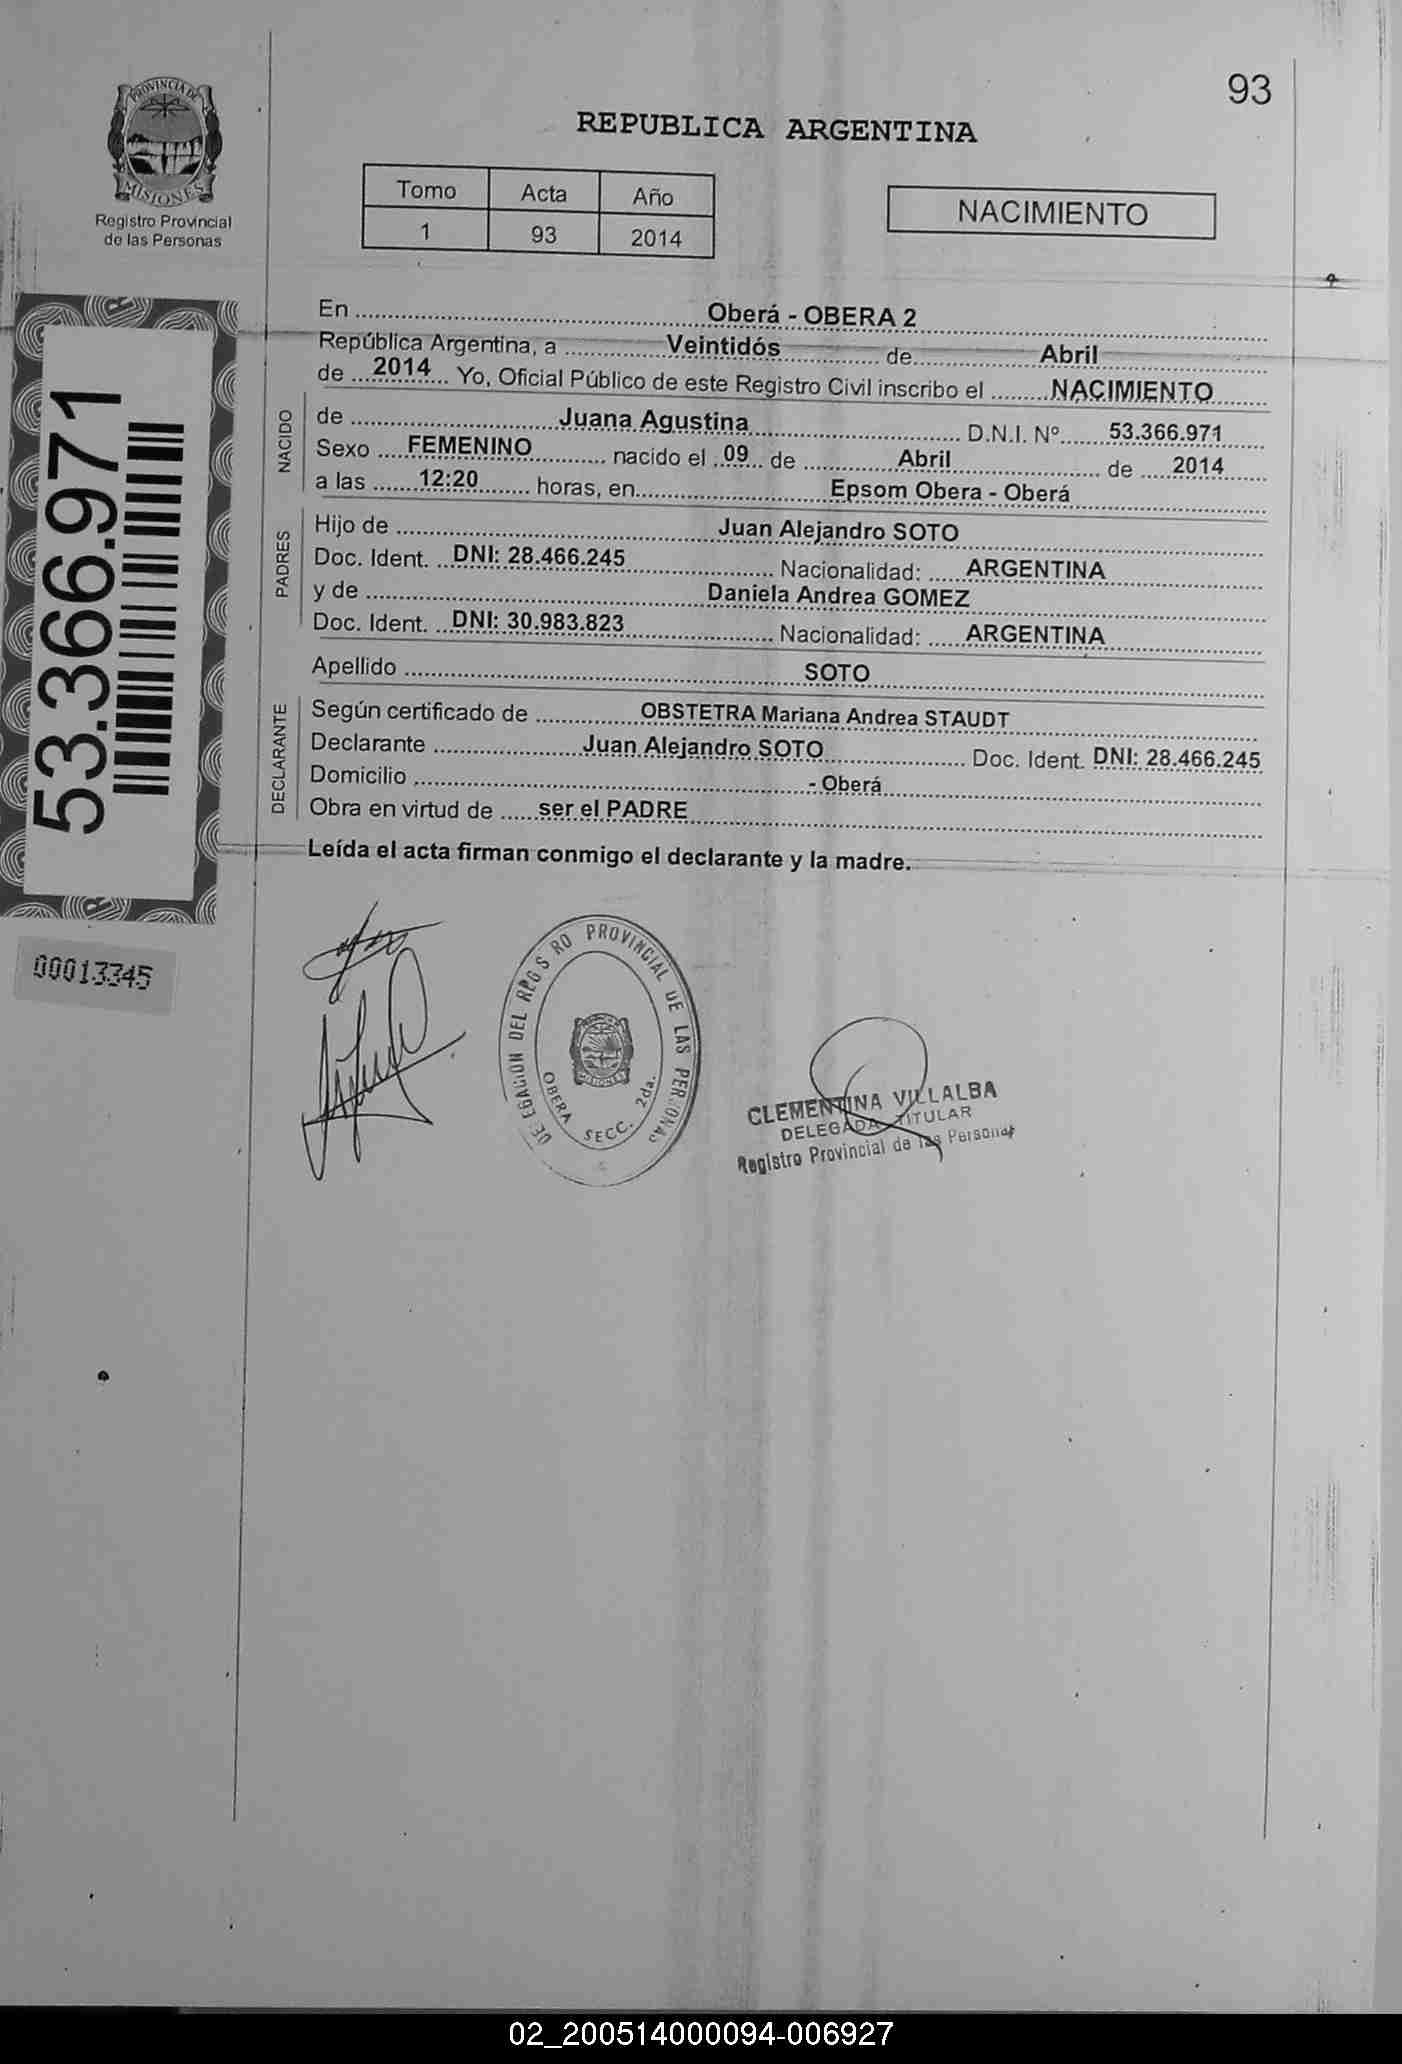 93
PROVINCIA DE
MISIONES
Registro Provincial
de las Personas
REPUBLICA ARGENTINA
Tomo Acta Año
1 93 2014
NACIMIENTO
53.366.971
00013345
En ........ Oberá - OBERA 2 ........
República Argentina, a ........ Veintidós ........ de ........ Abril ........
de ... 2014 ... Yo, Oficial Público de este Registro Civil inscribo el ........ NACIMIENTO ........
NACIDO
de ........ Juana Agustina ........ D.N.I. Nº ...... 53.366.971 ......
Sexo .... FEMENINO ........ nacido el .. 09 .. de ........ Abril ........ de .... 2014 ......
a las ...... 12:20 ...... horas, en ........ Epsom Obera - Oberá ........
PADRES
Hijo de ........ Juan Alejandro SOTO ........
Doc. Ident. .. DNI: 28.466.245 ........ Nacionalidad: ..... ARGENTINA ........
y de ........ Daniela Andrea GOMEZ ........
Doc. Ident. .. DNI: 30.983.823 ........ Nacionalidad: ..... ARGENTINA ........
Apellido ........ SOTO ........
DECLARANTE
Según certificado de ........ OBSTETRA Mariana Andrea STAUDT ........
Declarante ........ Juan Alejandro SOTO ........ Doc. Ident. DNI: 28.466.245
Domicilio ........ - Oberá ........
Obra en virtud de ..... ser el PADRE ........
Leída el acta firman conmigo el declarante y la madre.
DELEGACION DEL REGISTRO PROVINCIAL DE LAS PERSONAS
OBERA SECC. 2da.
MISIONES
CLEMENTINA VILLALBA
DELEGADA TITULAR
Registro Provincial de las Personas
02_200514000094-006927